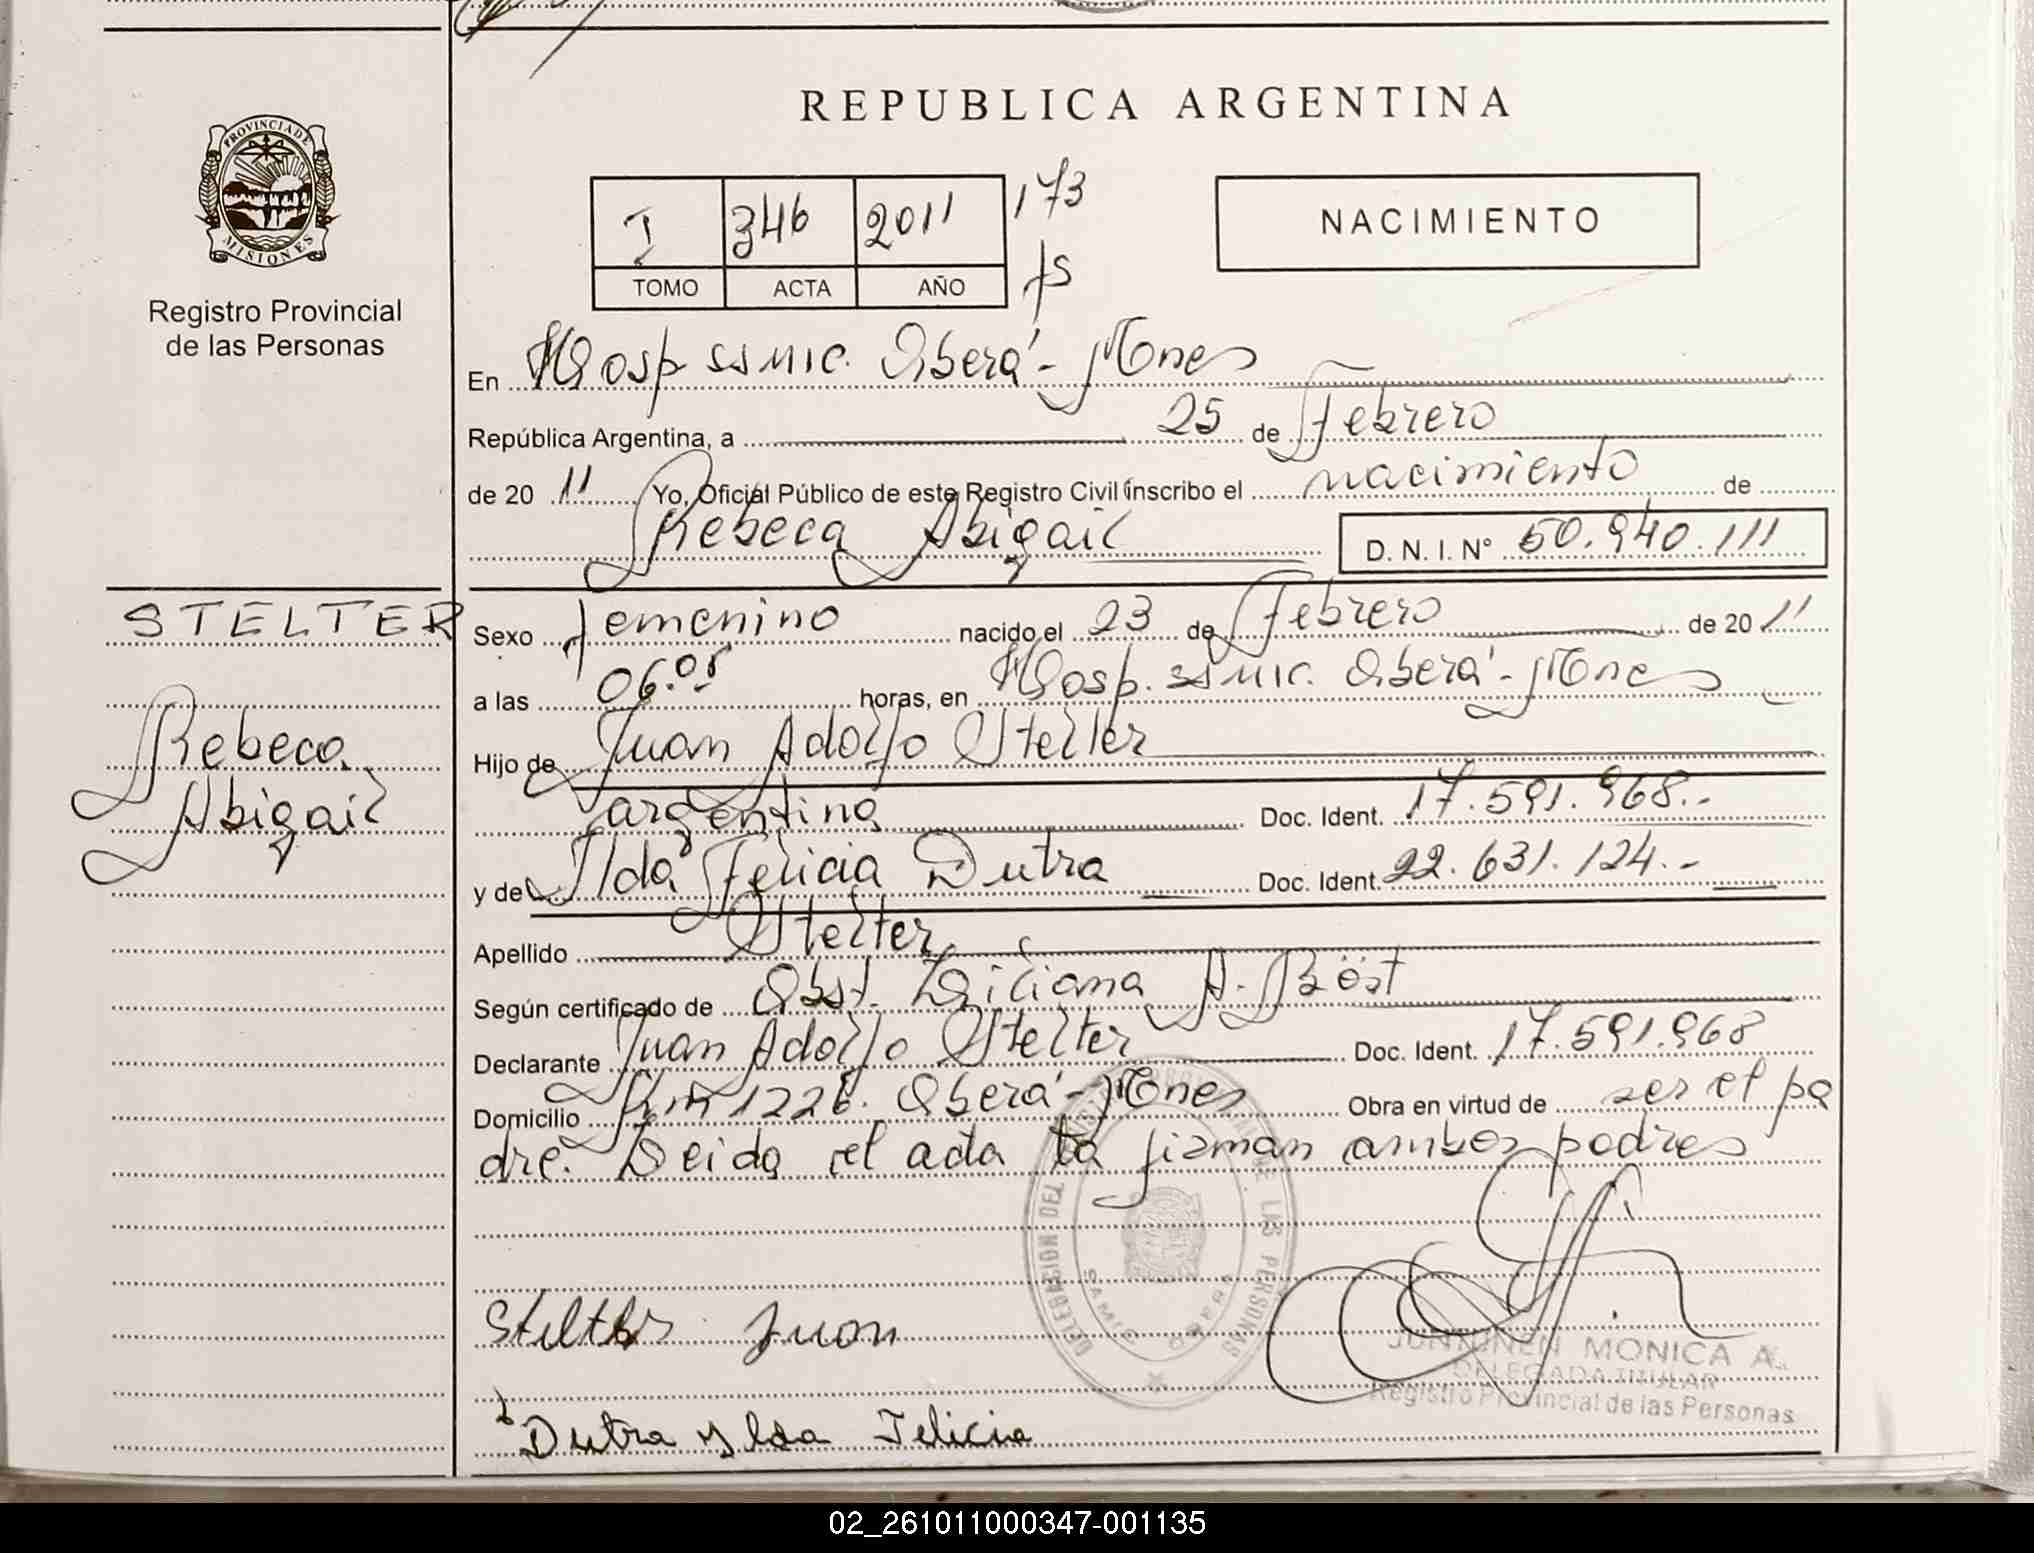 PROVINCIA DE
MISIONES
Registro Provincial
de las Personas
REPUBLICA ARGENTINA
I 346 2011 173
TOMO ACTA AÑO fs
NACIMIENTO
En Hosp ssmic. Oberá - Mnes
República Argentina, a 25 de Febrero
de 20 11 Yo, Oficial Público de este Registro Civil inscribo el nacimiento de
Rebeca Abigail D. N. I. Nº 50.940.111
STELTER
Rebeca
Abigail
Sexo femenino nacido el 23 de Febrero de 20 11
a las 06.05 horas, en Hosp. ssmic. Oberá - Mnes
Hijo de Juan Adolfo Stelter
argentina Doc. Ident. 17.591.968.-
y de Ilda Felicia Dutra Doc. Ident. 22.631.124.-
Apellido Stelter
Según certificado de Obst. Liliana A. Böst
Declarante Juan Adolfo Stelter Doc. Ident. 17.591.968
Domicilio Km 1226. Oberá - Mnes Obra en virtud de ser el pa
dre. Leida el acta la firman ambos padres
DELEGACION DEL DE LAS PERSONAS
SAMIC OBERA
Stelter Juan
JUNTUNEN MONICA A.
DELEGADA TITULAR
Registro Provincial de las Personas
Dutra Ylda Felicia
02_261011000347-001135